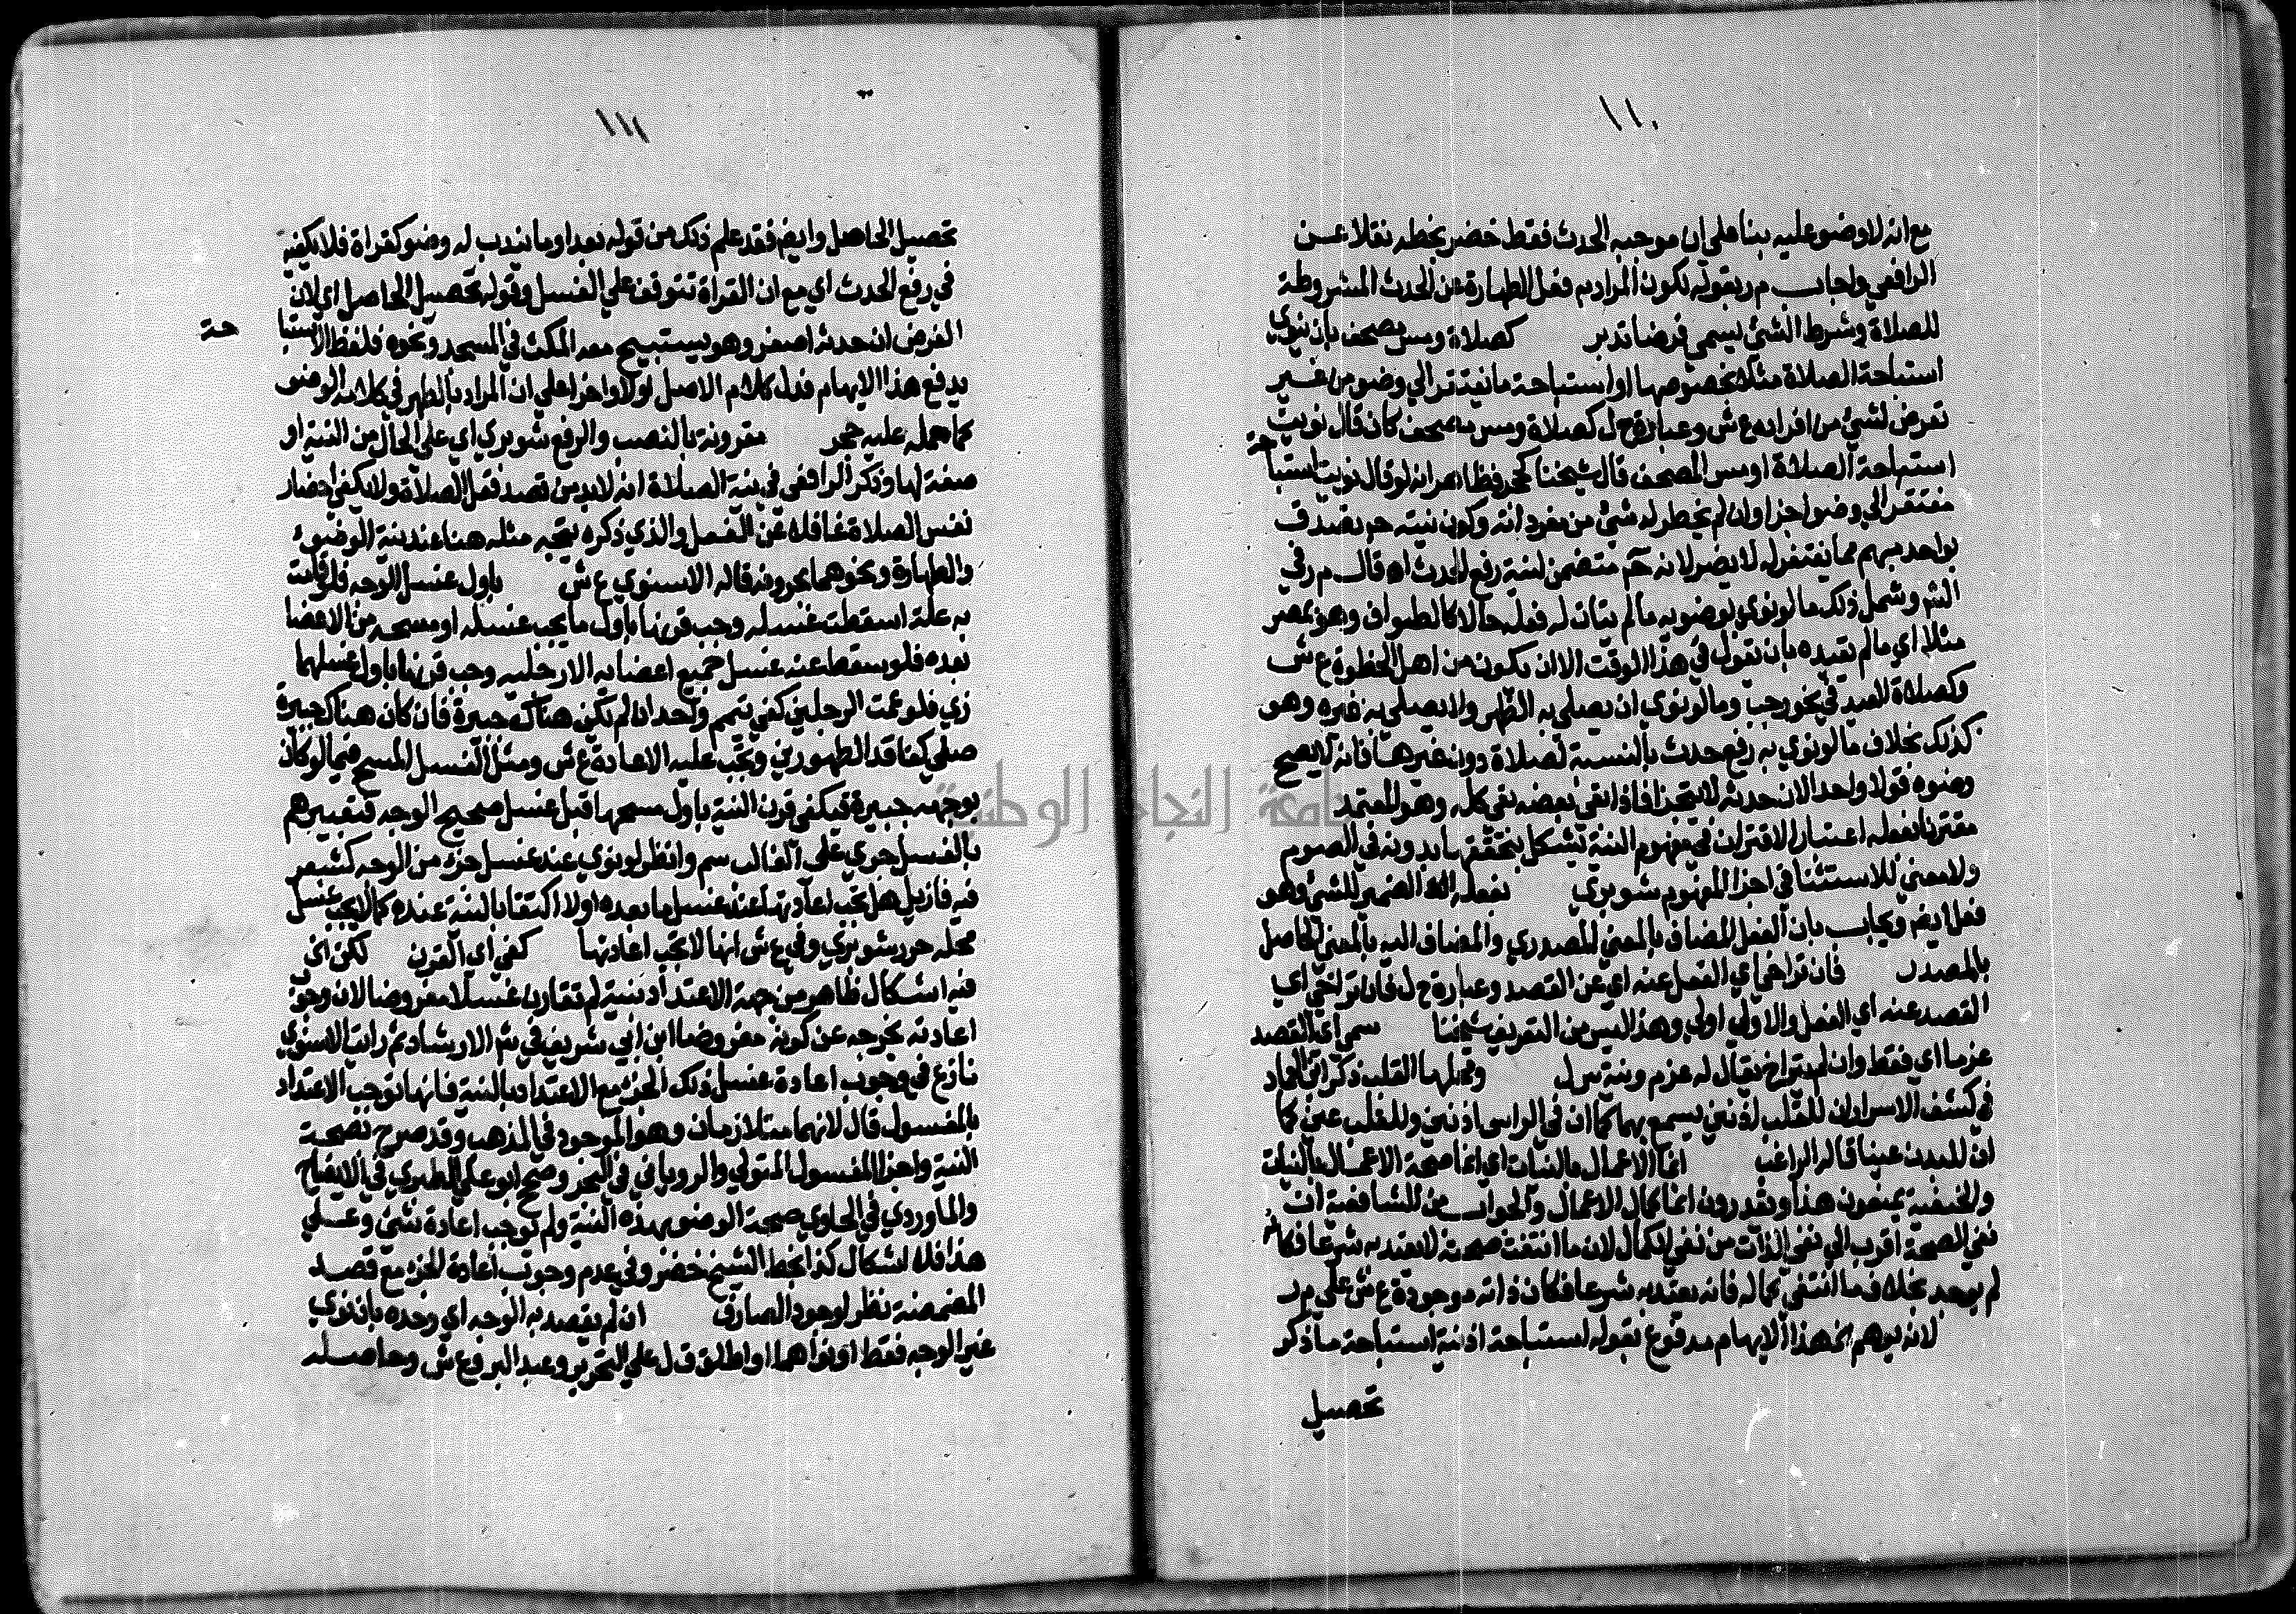 ١١٠
مع انه لا وضو عليه بنا على ان موجبه الحدث فقط خضر بخطه نقلا عن
الرافعي واجاب م ر بقوله لكون المراد به فعل الطهارة عن الحدث المشروطة
للصلاة وشرط الشي يسمى فرضا تدبر كصلاة ومس مصحف بان ينوي
استباحة الصلاة مثلا بخصوصها او استباحة ما يفتقر الي وضو من غير
تعرض لشي من افراده ع ش وعبارة ح ل كصلاة ومس مصحف كان قال نويت
استباحة الصلاة او مس المصحف قال شيخنا كحجر وظاهر انه لو قال نويت استباحة
مفتقر الي وضو اجزا وان لم يخطر له شي من مفرداته وكون نيته ح تصدق
بواحد مبهم مما يفتقر له لا يضر لانه ح متضمن لنية رفع الحدث اه قال م ر في
الش وشمل ذلك ما لو نوى بوضويه ما لم يتات له فعله حالا كالطواف وهو بمصر
مثلا اي ما لم يقيده بان يقول في هذا الوقت الا ان يكون من اهل الخطوة ع ش
وكصلاة العيد في نحو رجب وما لو نوى ان يصلي به الظهر ولا يصلي به غيره وهو
كذلك بخلاف ما لو نوي به رفع حدث بالنسبة لصلاة دون غيرها فانه لا يصح
وضوه قولا واحدا لان حدثه لا يتجزا فاذا بقي بعضه بقي كله وهو المعتمد
مقترنا بفعله اعتبار الاقتران في مفهوم النية يشكل بتحققها بدونه في الصوم
ولا معنى للاستثنا في اجزا المفهوم شوبري بفعله الضمير للشي وهو
فعل ايضا ويجاب بان الفعل المضاف بالمعني المصدري والمضاف اليه بالمعني الحاصل
بالمصدر فان تراخى اي الفعل عنه اي عن القصد وعبارة ح ل فان تراخي اي
القصد عنه اي الفعل والاولي اولي وهذا ليس من التعريف شيخنا سمي اي القصد
عزما اي فقط وان لم يتراخ يقال له عزم ونية س ل ومحلها القلب ذكر ابن العماد
في كشف الاسرار ان للقلب اذنين يسمع بهما كما ان في الراس اذنين وللقلب عين كما
ان للبدن عينا قاله الراغب انما الاعمال بالنيات اي انما صحة الاعمال بالنيات
والحنفية يمنعون هذا ويقدرون انما كمال الاعمال والجواب من الشافعية ان
نفي الصحة اقرب الي نفي الذات من نفي الكمال لان ما انتفت صحته لا يعتد به شرعا فكانه
لم يوجد بخلاف ما انتفي كماله فانه يعتد به شرعا فكان ذاته موجودة ع ش علي م ر
لانه يوهم الخ هذا الايهام مدفوع بقوله استباحة اذ نية استباحة ما ذكر
تحصيل
١١١
تحصيل الحاصل وايضا فقد علم ذلك من قوله بعد او ما يندب له وضو كقراة فلا يكفيه
في رفع الحدث اي مع ان القراة تتوقف علي الغسل وقوله تحصيل الحاصل اي لان
الفرض ان حدثه اصغر وهو يستبيح معه المكث في المسجد ونحوه فلفظ الاستباحة
يدفع هذا الايهام فدل كلام الاصل اولا واخرا علي ان المراد بالطهر في كلامه الوضو
كما حمله عليه حجر مقرونة بالنصب والرفع شوبري اي علي الحال من النية او
صفة لها وذكر الرافعي في نية الصلاة انه لابد من قصد فعل الصلاة ولا يكفي احضار
نفس الصلاة غافلا عن الفعل والذي ذكره يتجه مثله هنا عند نية الوضوء
والطهارة ونحوهما بحروفه قاله الاسنوي ع ش باول غسل الوجه فلو قامت
به علة اسقطت غسله وجب قرنها باول ما يجب غسله او مسحه من الاعضا
بعده فلو سقط عنه غسل جميع اعضايه الا رجليه وجب قرنها باول غسلهما
زي فلو عمت الرجلين كفي تيمم واحد ان لم يكن هناك جبيرة فان كان هناك جبيرة
صلي كفاقد الطهورين وتجب عليه الاعادة ع ش ومثل الغسل المسح فيما لو كان
بوجهه جبيرة فيكفي قرن النية باول مسحها قبل غسل صحيح الوجه فتعبيرهم
بالغسل جري علي الغالب سم وانظر لو نوي عند غسل جزء من الوجه كشعر
فيه فازيل هل تجب اعادتها عند غسل ما بعده او لا اكتفا بالنية عنده كما لا يجب غسل
محله حرر شوبري وفي ع ش انها لا تجب اعادتها كفي اي القرن لكن اي
فيه اشكال ظاهر من جهة الاعتداد بنية لم تقارن غسلا مفروضا لان وجوب
اعادته يخرجه عن كونه مفروضا ابن ابي شريف في ش الارشاد ثم رايت الاسنوي
نازع في وجوب اعادة غسل ذلك الجزء مع الاعتداد بالنية فانها توجب الاعتداد
بالمغسول قال لانهما متلازمان وهو الموجود في المذهب وقد صرح بصحة
النية واجزا المغسول المتولي والروياني في البحر وصحح ابو علي الطبري في الايضاح
والماوردي في الحاوي صحة الوضو بهذه النية ولم يوجب اعادة شي وعلي
هذا فلا اشكال كذا بخط الشيخ خضر وفي عدم وجوب اعادة الجزء مع قصد
المضمضة نظر لوجود الصارف ان لم يقصد به الوجه اي وحده بان نوي
غير الوجه فقط او نواهما او اطلق ق ل علي التحرير وعبد البر وع ش وحاصله
جامعة النجاح الوطنية